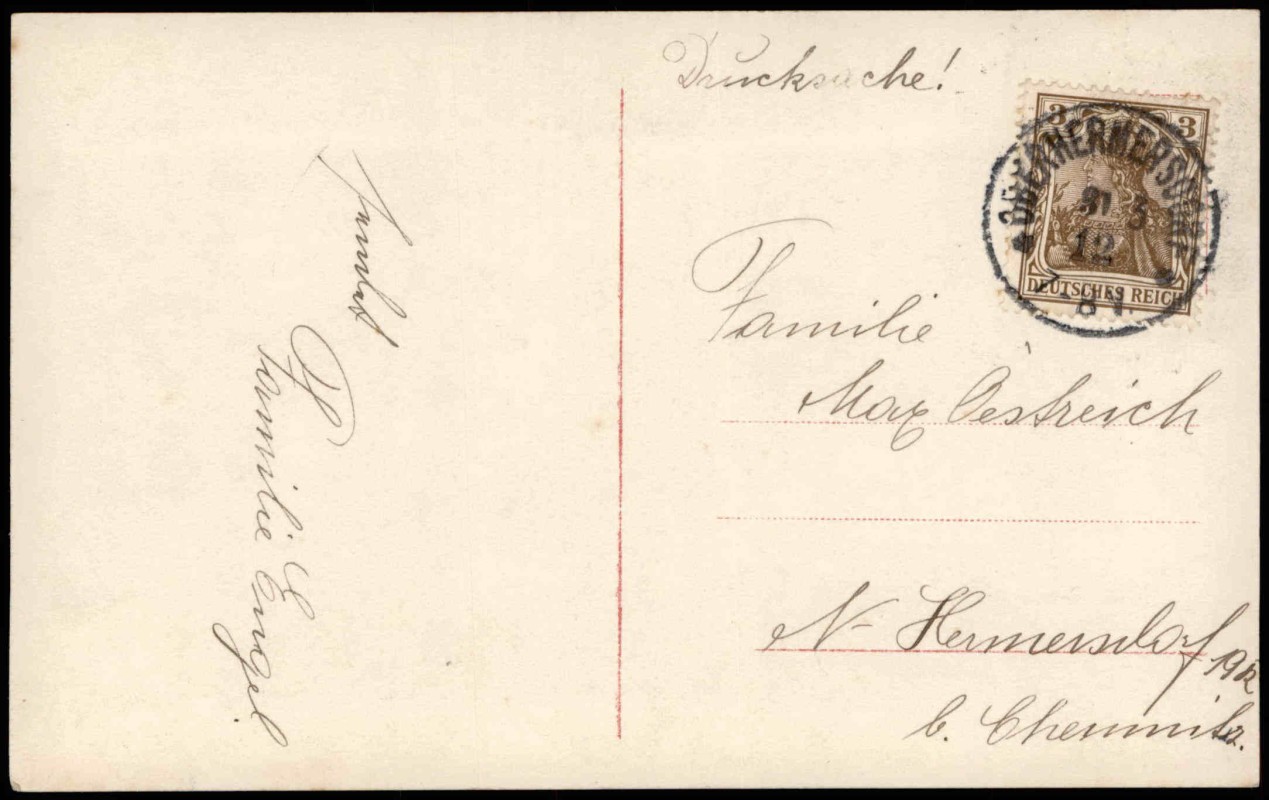 Drucksache!
3 3
OBERHERMERSDORF
31 5
12
DEUTSCHES REICH
Familie
Max Oestreich
N-Hermersdorf
1912
b. Chemnitz.
Familie Engel